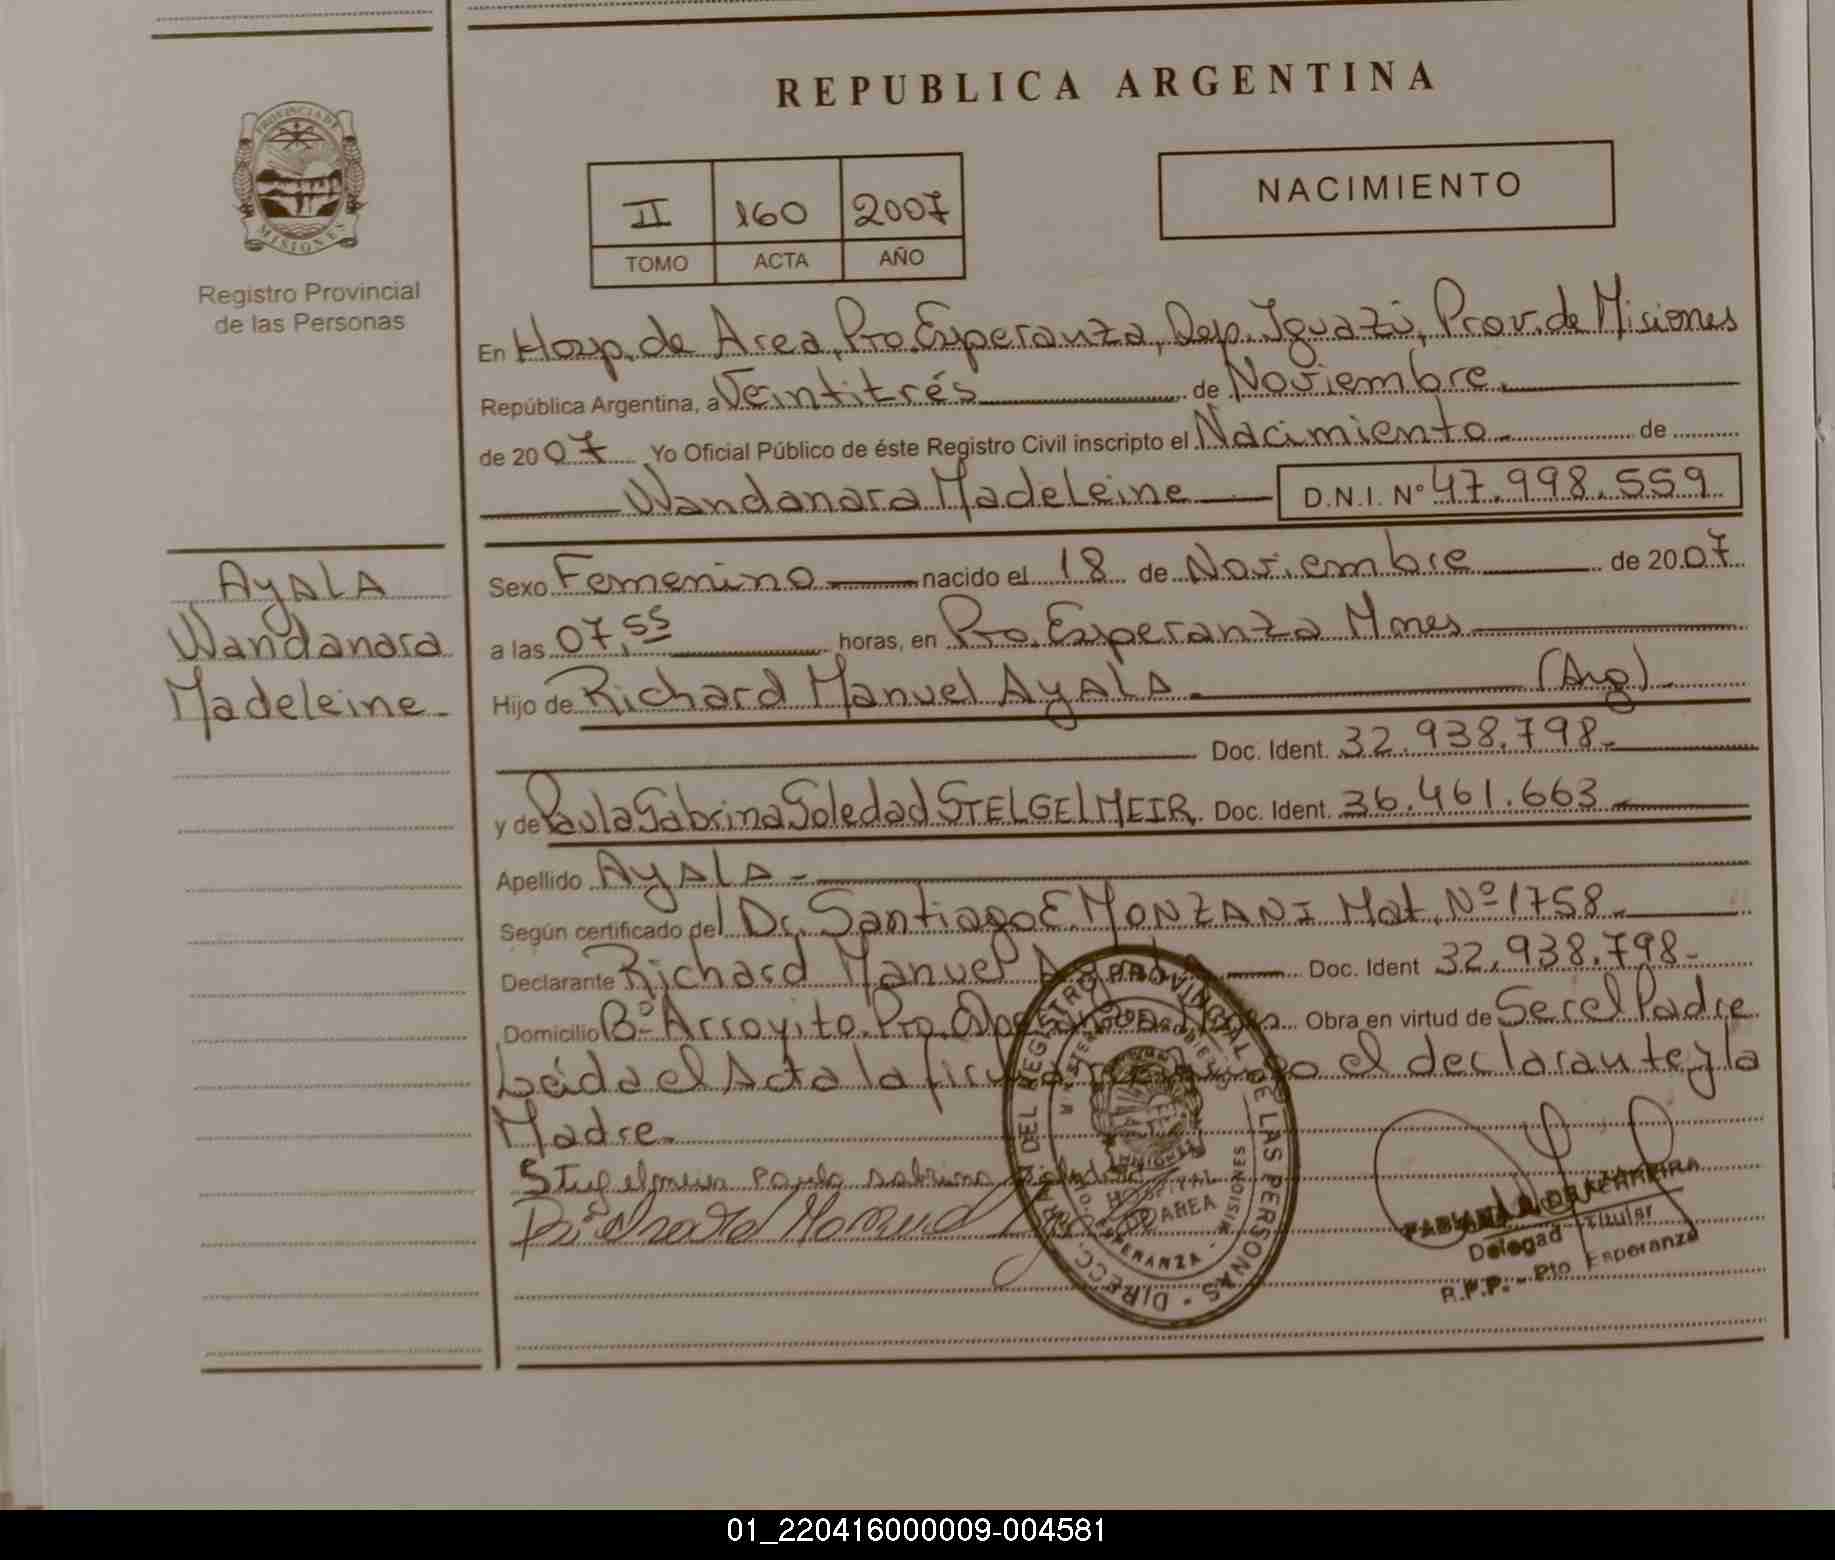 REPUBLICA ARGENTINA
PROVINCIA DE
MISIONES
Registro Provincial
de las Personas
II 160 2007
TOMO ACTA AÑO
NACIMIENTO
En Hosp. de Area, Pto. Esperanza, Dep. Iguazú, Prov. de Misiones
República Argentina, a Veintitrés de Noviembre.
de 2007 Yo Oficial Público de éste Registro Civil inscripto el Nacimiento de
Wandanara Madeleine D.N.I. Nº 47.998.559
AyALA
Wandanara
Madeleine
Sexo Femenino nacido el 18 de Noviembre de 2007
a las 07,55 horas, en Pto. Esperanza Mnes
Hijo de Richard Manuel AyALA (Arg)
Doc. Ident. 32.938.798
y de Paula Sabrina Soledad STELGELMEIR. Doc. Ident. 36.461.663
Apellido AyALA
Según certificado del Dr. Santiago E. MONZANI Mat. Nº 1758
Declarante Richard Manuel Doc. Ident 32.938.798
Domicilio Bº Arroyito. Pto. Obra en virtud de Ser el Padre
Leida el Acta la el declarante y la
Madre
paula sabrina
Richard Manuel
DIRECC. DEL REGISTRO PROVINCIAL DE LAS PERSONAS
HOSPITAL
DE AREA
ESPERANZA - MISIONES
Delegad Titular
R.P.P. - Pto Esperanza
01_220416000009-004581